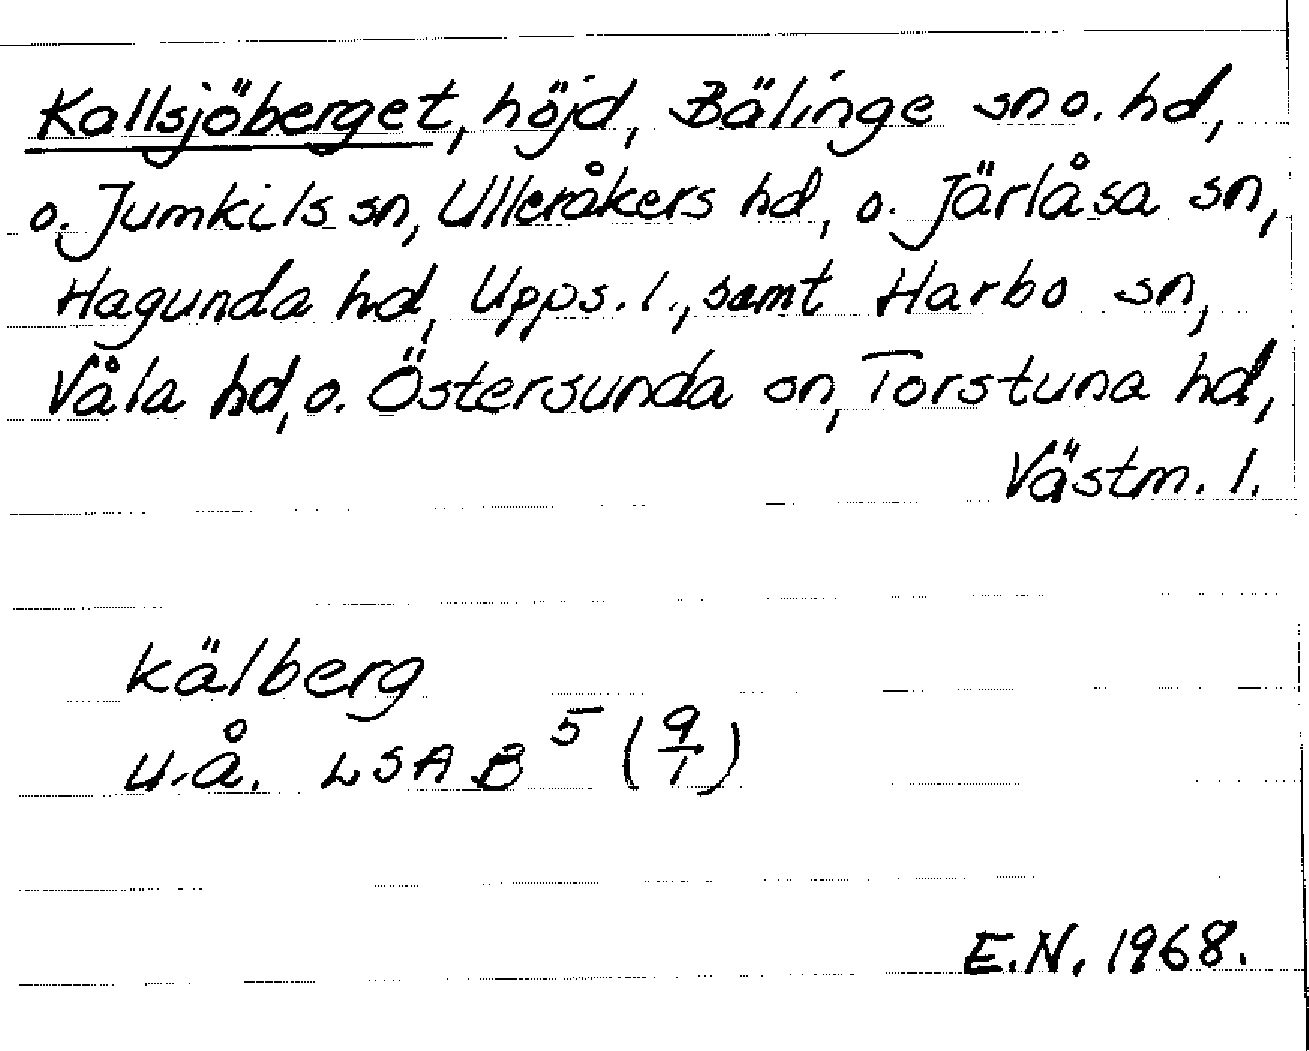 Kallsjöberget, höjd, Bälinge sn o. hd,
o. Jumkils sn, Ulleråkers hd, o. Järlåsa sn,
Hagunda hd, Upps. l., samt Harbo sn,
Våla hd, o. Östersunda sn, Torstuna hd,
Västm. l.
kälberg
u.å. LSA B 5 (9/1)
E.N. 1968.